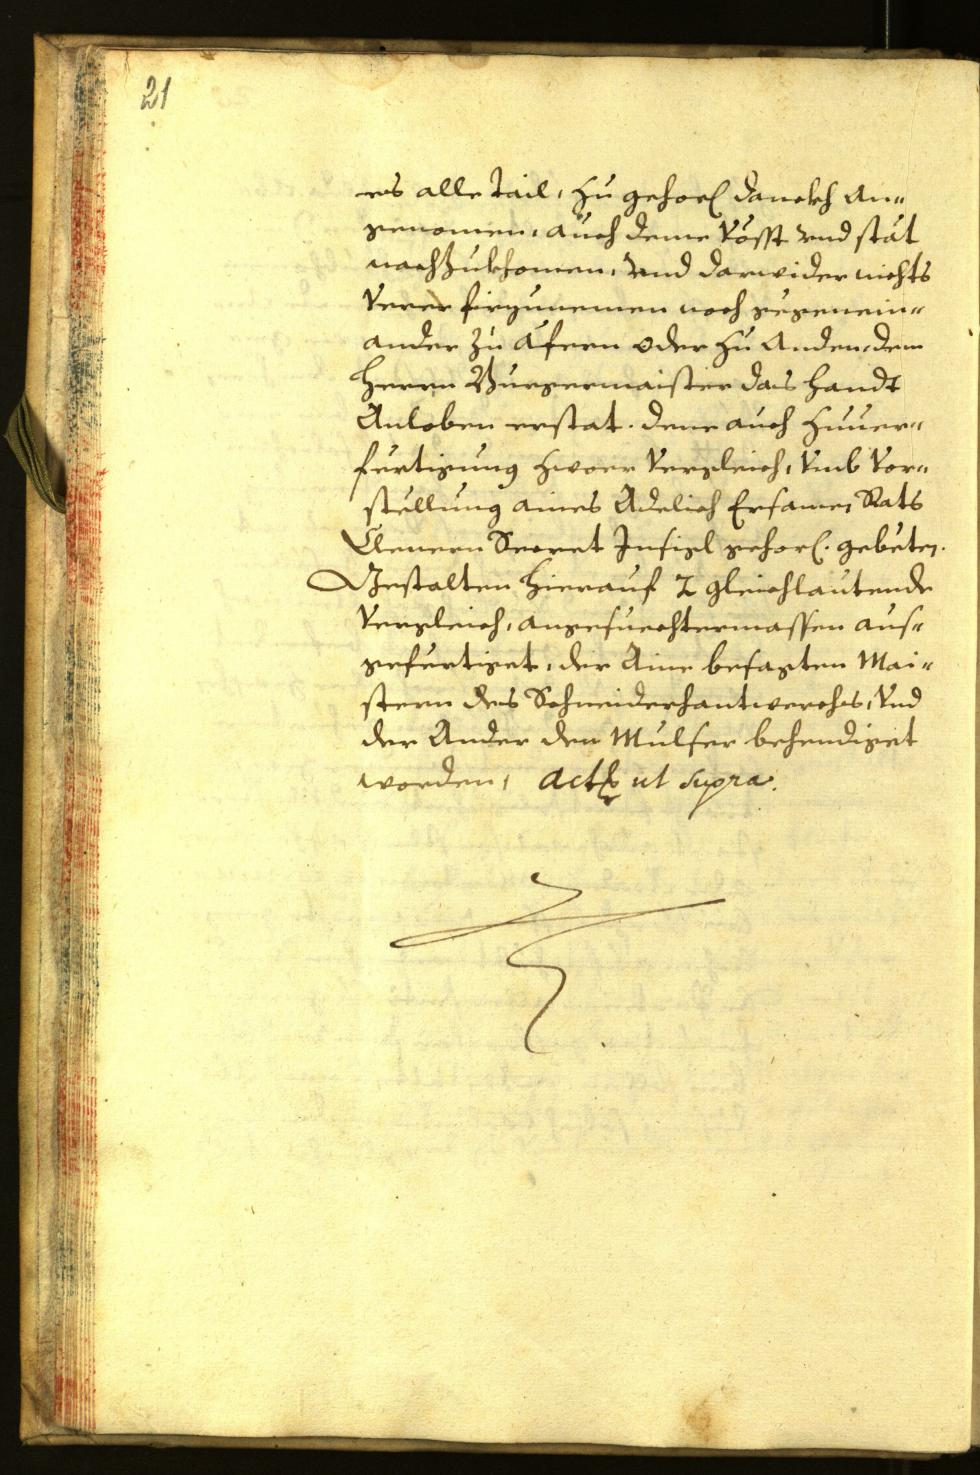 21
es alle Tail, zu gehorſ danckh An„
genomen, auch deme Vösst und stät
nachzukhomen, und darwider nichts
Verer firzunemen noch gegenein„
ander zu Äfern oder zu Anden, dem
Herrn Burgermaister das Handt
Anloben erstat. Dene auch zuuer„
ferttigung zwoer Vergleich, Vmb Vor„
stellung aines Adelich Ersamen Rats
Clenern Secret Insigl gehorſ. gebeten.
Gestalten hierauf 2 gleichlautende
Vergleich, angefuechtermassen aus„
gefertiget, der Aine besagten Mai„
stern des Schneiderhantwerchs, Vnd
der Ander den Mulser behendiget
worden, Act ut supra.